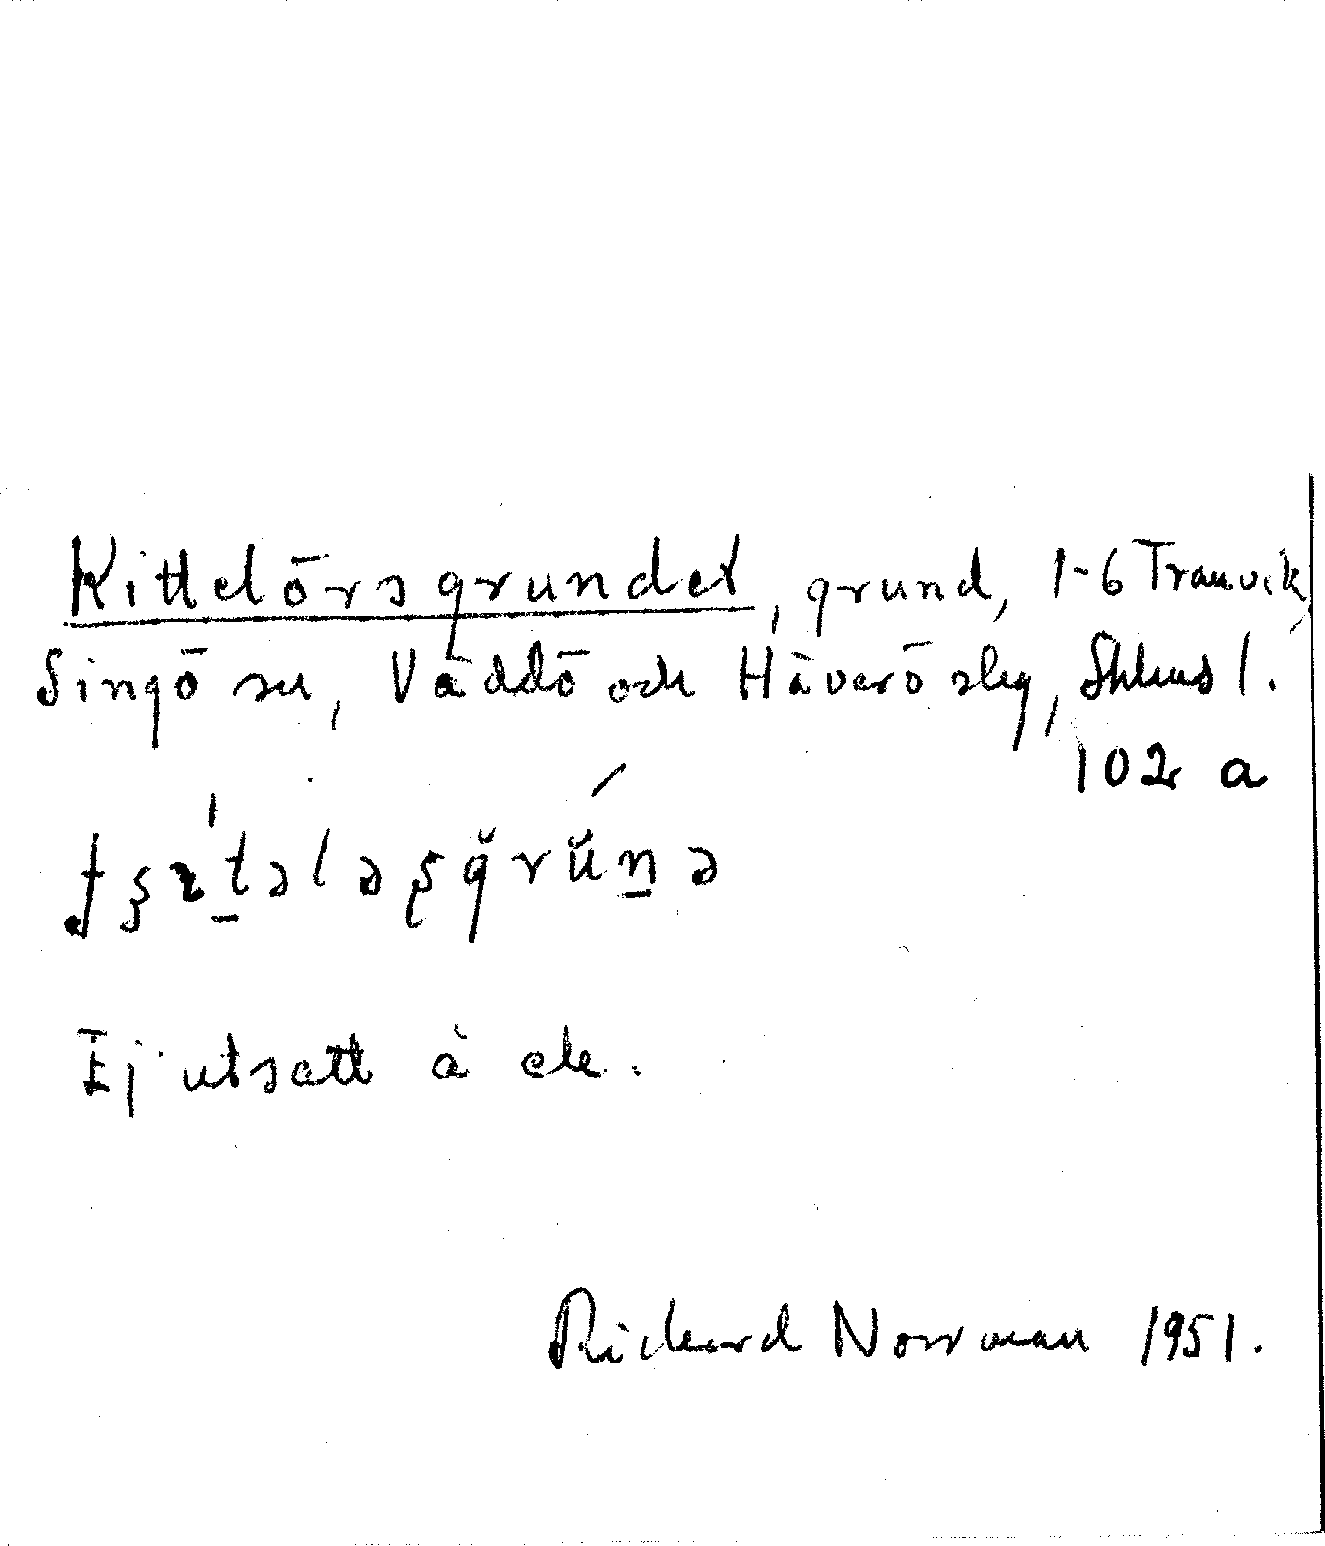 Kittelörsgrundet, grund, 1-6 Tranvik,
Singö sn, Väddö och Häverö slg, Sthlms l.
102 a
Ej utsatt å ek.
Richard Norrman 1951.